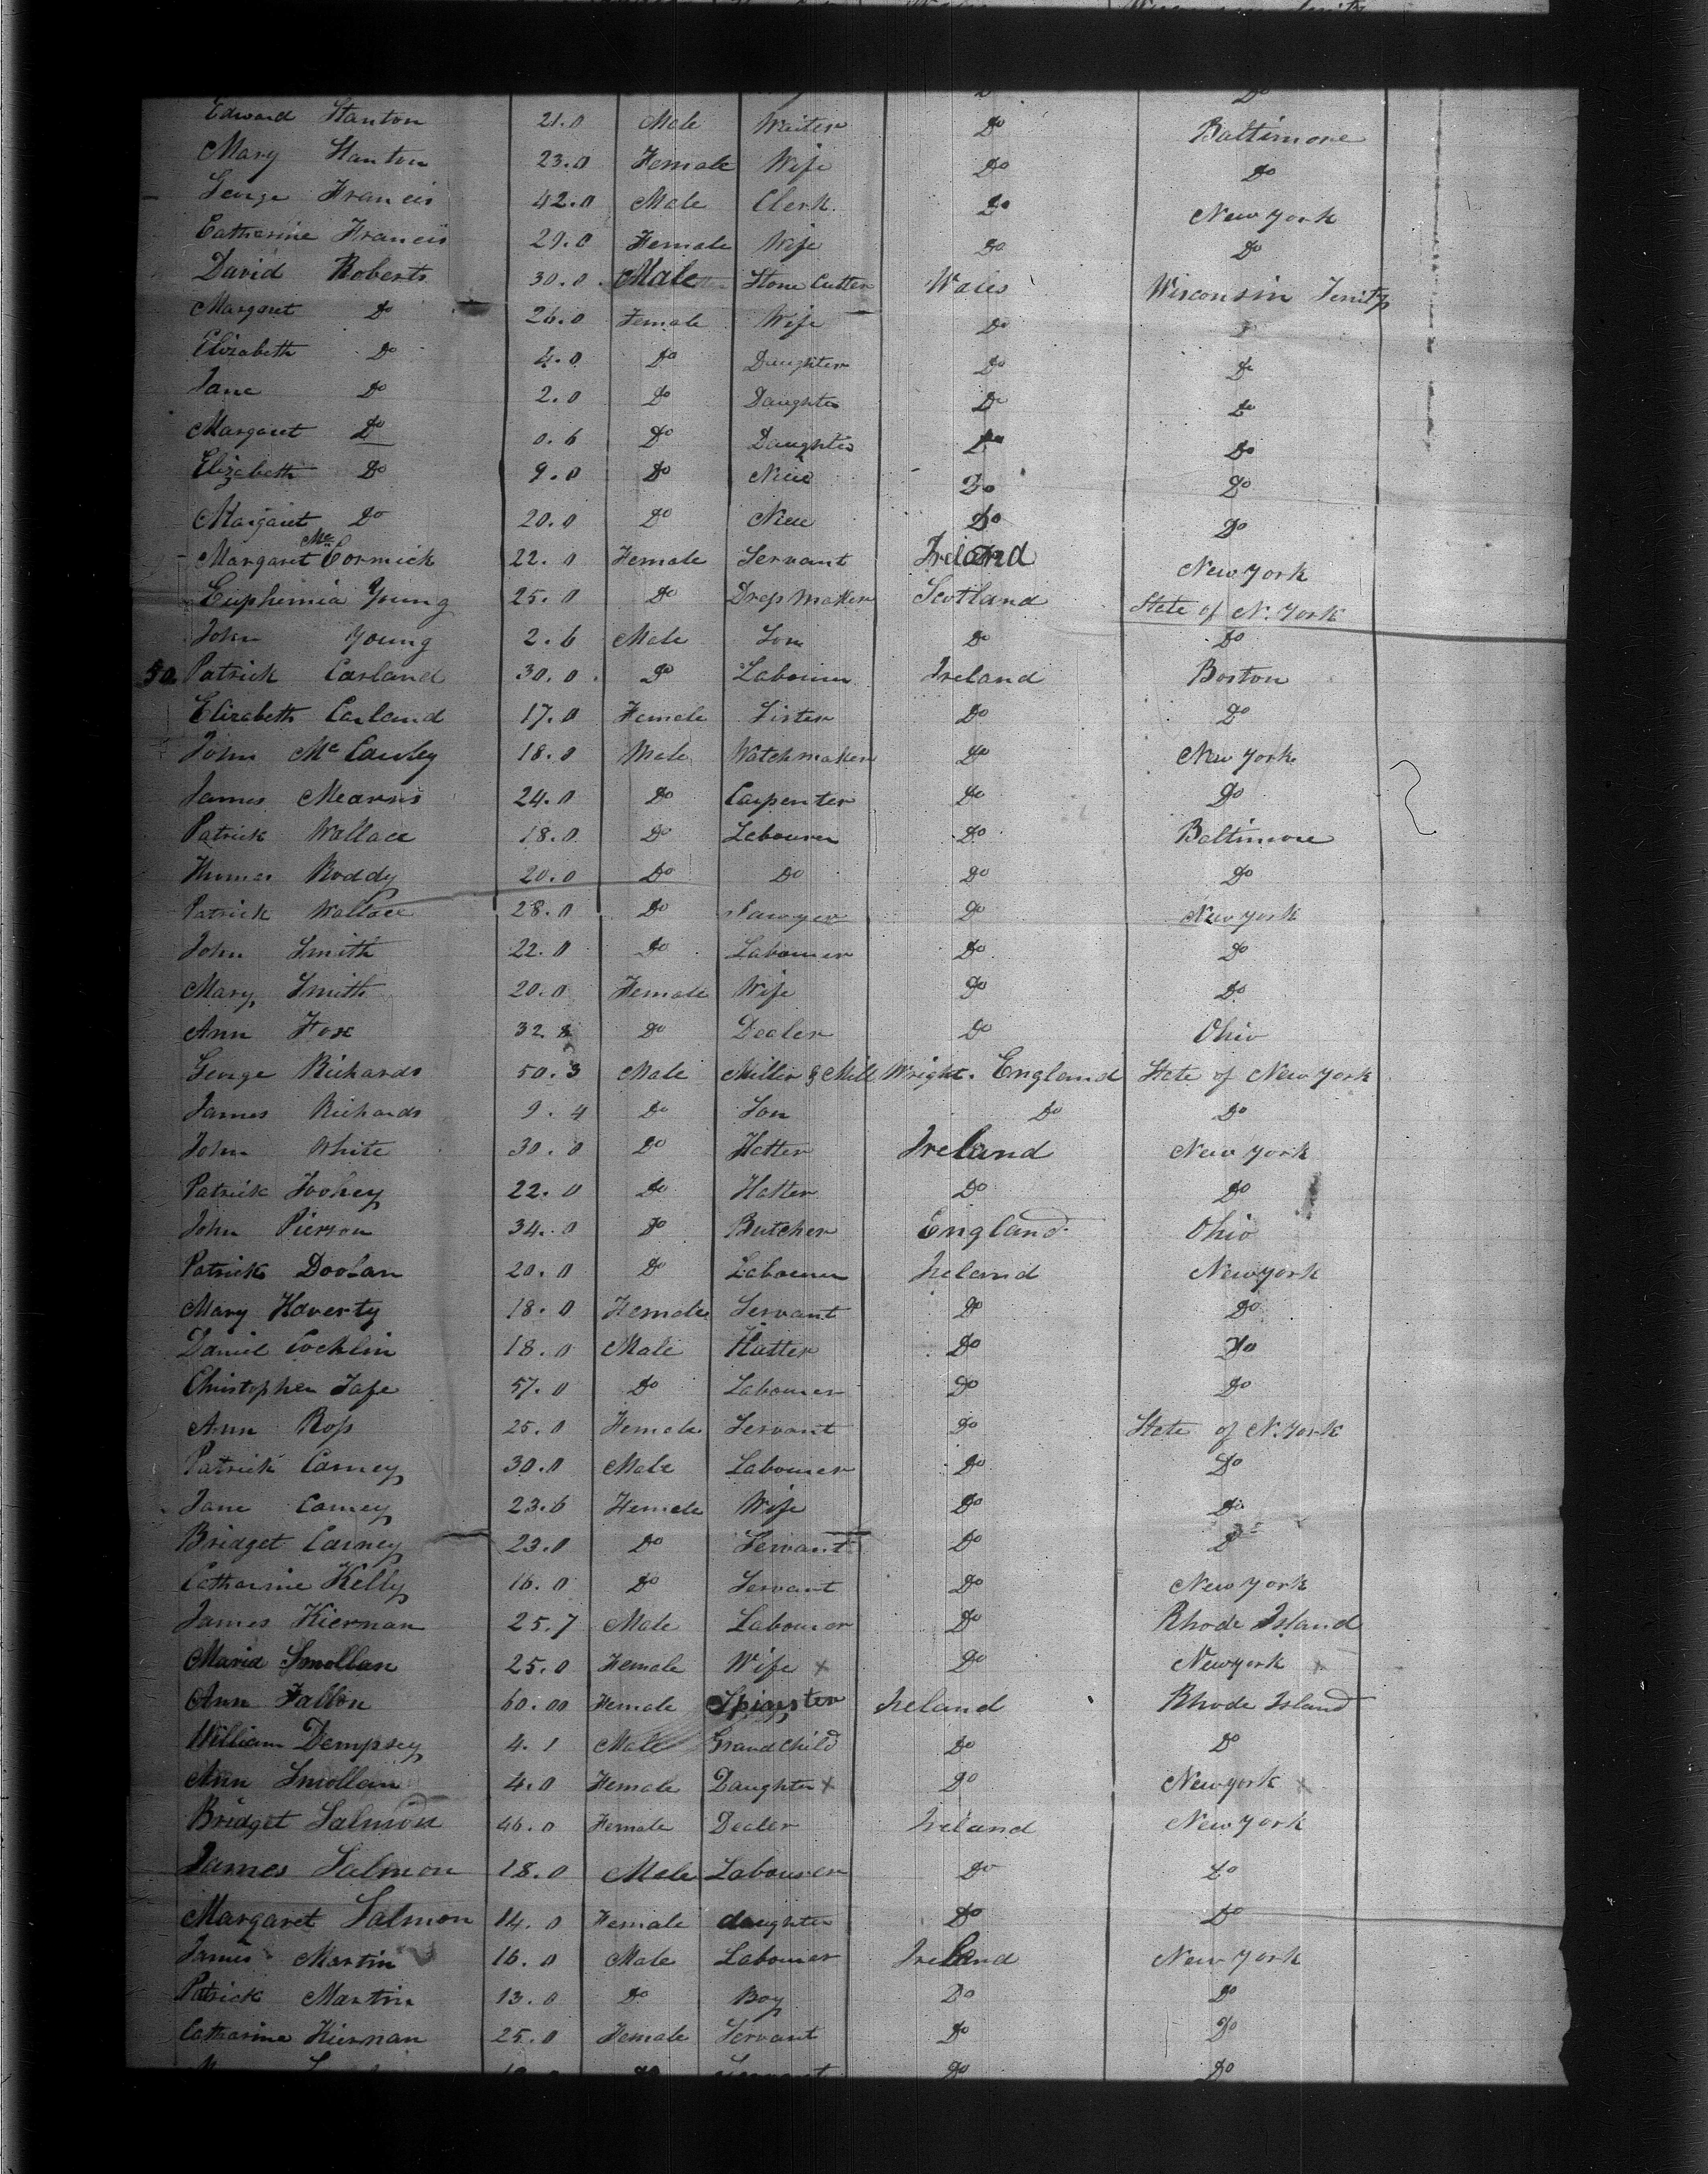 Edward Stanton 21.0 Male Waiter Do Baltimore
Mary Stanton 23.0 Female Wife Do Do
George Francis 42.0 Male Clerk Do New York
Catharine Francis 29.0 Female Wife Do Do
David Roberts 30.0 Male Stone Cutter Wales Wisconsin
Margaret Do 26.0 Female Wife Do Do
Elizabeth Do 4.0 Do Daughter Do Do
Jane Do 2.0 Do Daughter Do Do
Margaret Do 0.6 Do Daughter Do Do
Elizabeth Do 9.0 Do Niece Do Do
Margaret Do 20.0 Do Niece Do Do
Margaret McCormick 22.0 Female Servant Ireland New York
Euphemia Young 25.0 Do Dress Maker Scotland State of N. York
John Young 2.6 Male Son Do Do
50 Patrick Carland 30.0 Do Labourer Ireland Boston
Elizabeth Carland 17.0 Female Sister Do Do
John McCawley 18.0 Male Watchmaker Do New York
James Mearns 24.0 Do Carpenter Do Do
Patrick Wallace 18.0 Do Labourer Do Baltimore
Thomas Roddy 20.0 Do Do Do Do
Patrick Wallace 28.0 Do Sawyer Do New York
John Smith 22.0 Do Labourer Do Do
Mary Smith 20.0 Female Wife Do Do
Ann Fox 32 Do Dealer Do Ohio
George Richards 50.3 Male Miller & Mill Wright. England State of New York
James Richards 9.4 Do Son Do Do
John White 30.0 Do Hatter Ireland New York
Patrick Toohey 22.0 Do Hatter Do Do
John Pierson 34.0 Do Butcher England Ohio
Patrick Doolan 20.0 Do Labourer Ireland New York
Mary Haverty 18.0 Female Servant Do Do
Daniel Cocklin 18.0 Male Hatter Do Do
Christopher Tafe 57.0 Do Labourer Do Do
Ann Ross 25.0 Female Servant Do State of N. York
Patrick Carney 30.0 Male Labourer Do Do
Jane Carney 23.6 Female Wife Do Do
Bridget Carney 23.0 Do Servant Do Do
Catharine Kelly 16.0 Do Servant Do New York
James Kiernan 25.7 Male Labourer Do Rhode Island
Maria Smollan 25.0 Female Wife x Do New york x
Ann Fallon 60.00 Female Spinster Ireland Rhode Island
William Dempsey 4.1 Male Grand Child Do Do
Ann Smollan 4.0 Female Daughter x Do New york x
Bridget Salmon 46.0 Female Dealer Ireland New York
James Salmon 18.0 Male Labourer Do Do
Margaret Salmon 14.0 Female daughter Do Do
James Martin 16.0 Male Labourer Ireland New York
Patrick Martin 13.0 Do Boy Do Do
Catharine Kiernan 25.0 Female Servant Do Do
Do Servant Do Do